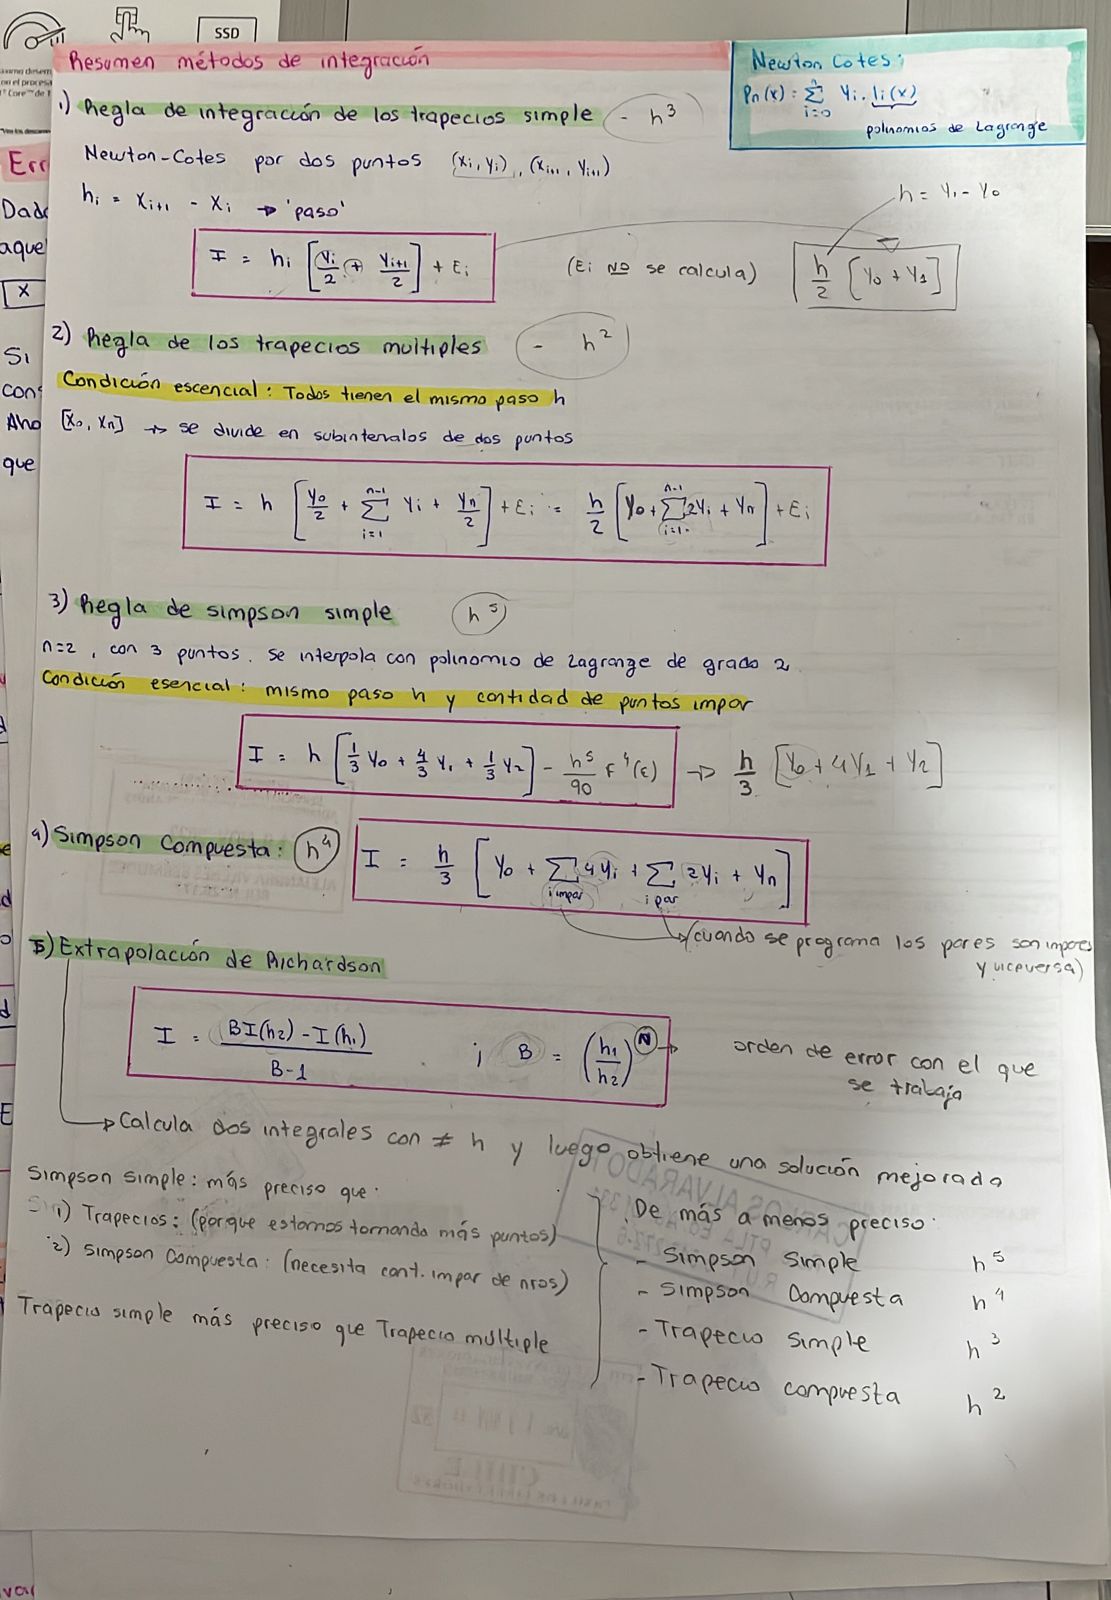 SSD
Resumen métodos de integración
Newton Cotes:
Pn(x): Σ yi. li(x)
n
i=0
polinomios de Lagrange
1) Regla de integración de los trapecios simple - h³
Newton-Cotes por dos puntos (xi, yi), (xi+1, yi+1)
hi = xi+1 - xi → 'paso'
h = y1 - y0
I = hi [yi/2 + yi+1/2] + Ei
(Ei NO se calcula)
h/2 [y0 + y1]
2) Regla de los trapecios multiples - h²
Condición escencial: Todos tienen el mismo paso h
[x0, xn] → se divide en subintervalos de dos puntos
I = h [y0/2 + Σ(i=1, n-1) yi + yn/2] + Ei = h/2 [y0 + Σ(i=1, n-1) 2yi + yn] + Ei
3) Regla de simpson simple h⁵
n=2, con 3 puntos. Se interpola con polinomio de Lagrange de grado 2
Condición esencial: mismo paso h y cantidad de puntos impar
I = h [1/3 y0 + 4/3 y1 + 1/3 y2] - h⁵/90 F⁴(ε) → h/3 [y0 + 4y1 + y2]
4) Simpson Compuesta: h⁴
I = h/3 [y0 + Σ 4yi + Σ 2yi + yn]
i impar i par
(cuando se programa los pares son impares
y viceversa)
5) Extrapolación de Richardson
I = BI(h2) - I(h1) / B-1 ; B = (h1/h2)^N → orden de error con el que
se trabaja
→ Calcula dos integrales con ≠ h y luego obtiene una solución mejorada
Simpson simple: más preciso que:
1) Trapecios: (porque estamos tomando más puntos)
2) Simpson Compuesta: (necesita cant. impar de nros)
Trapecio simple más preciso que Trapecio multiple
De más a menos preciso:
- Simpson Simple h⁵
- Simpson Compuesta h⁴
- Trapecio Simple h³
- Trapecio compuesta h²
Err
Dad
aque
X
Si
cons
Aho
que
E